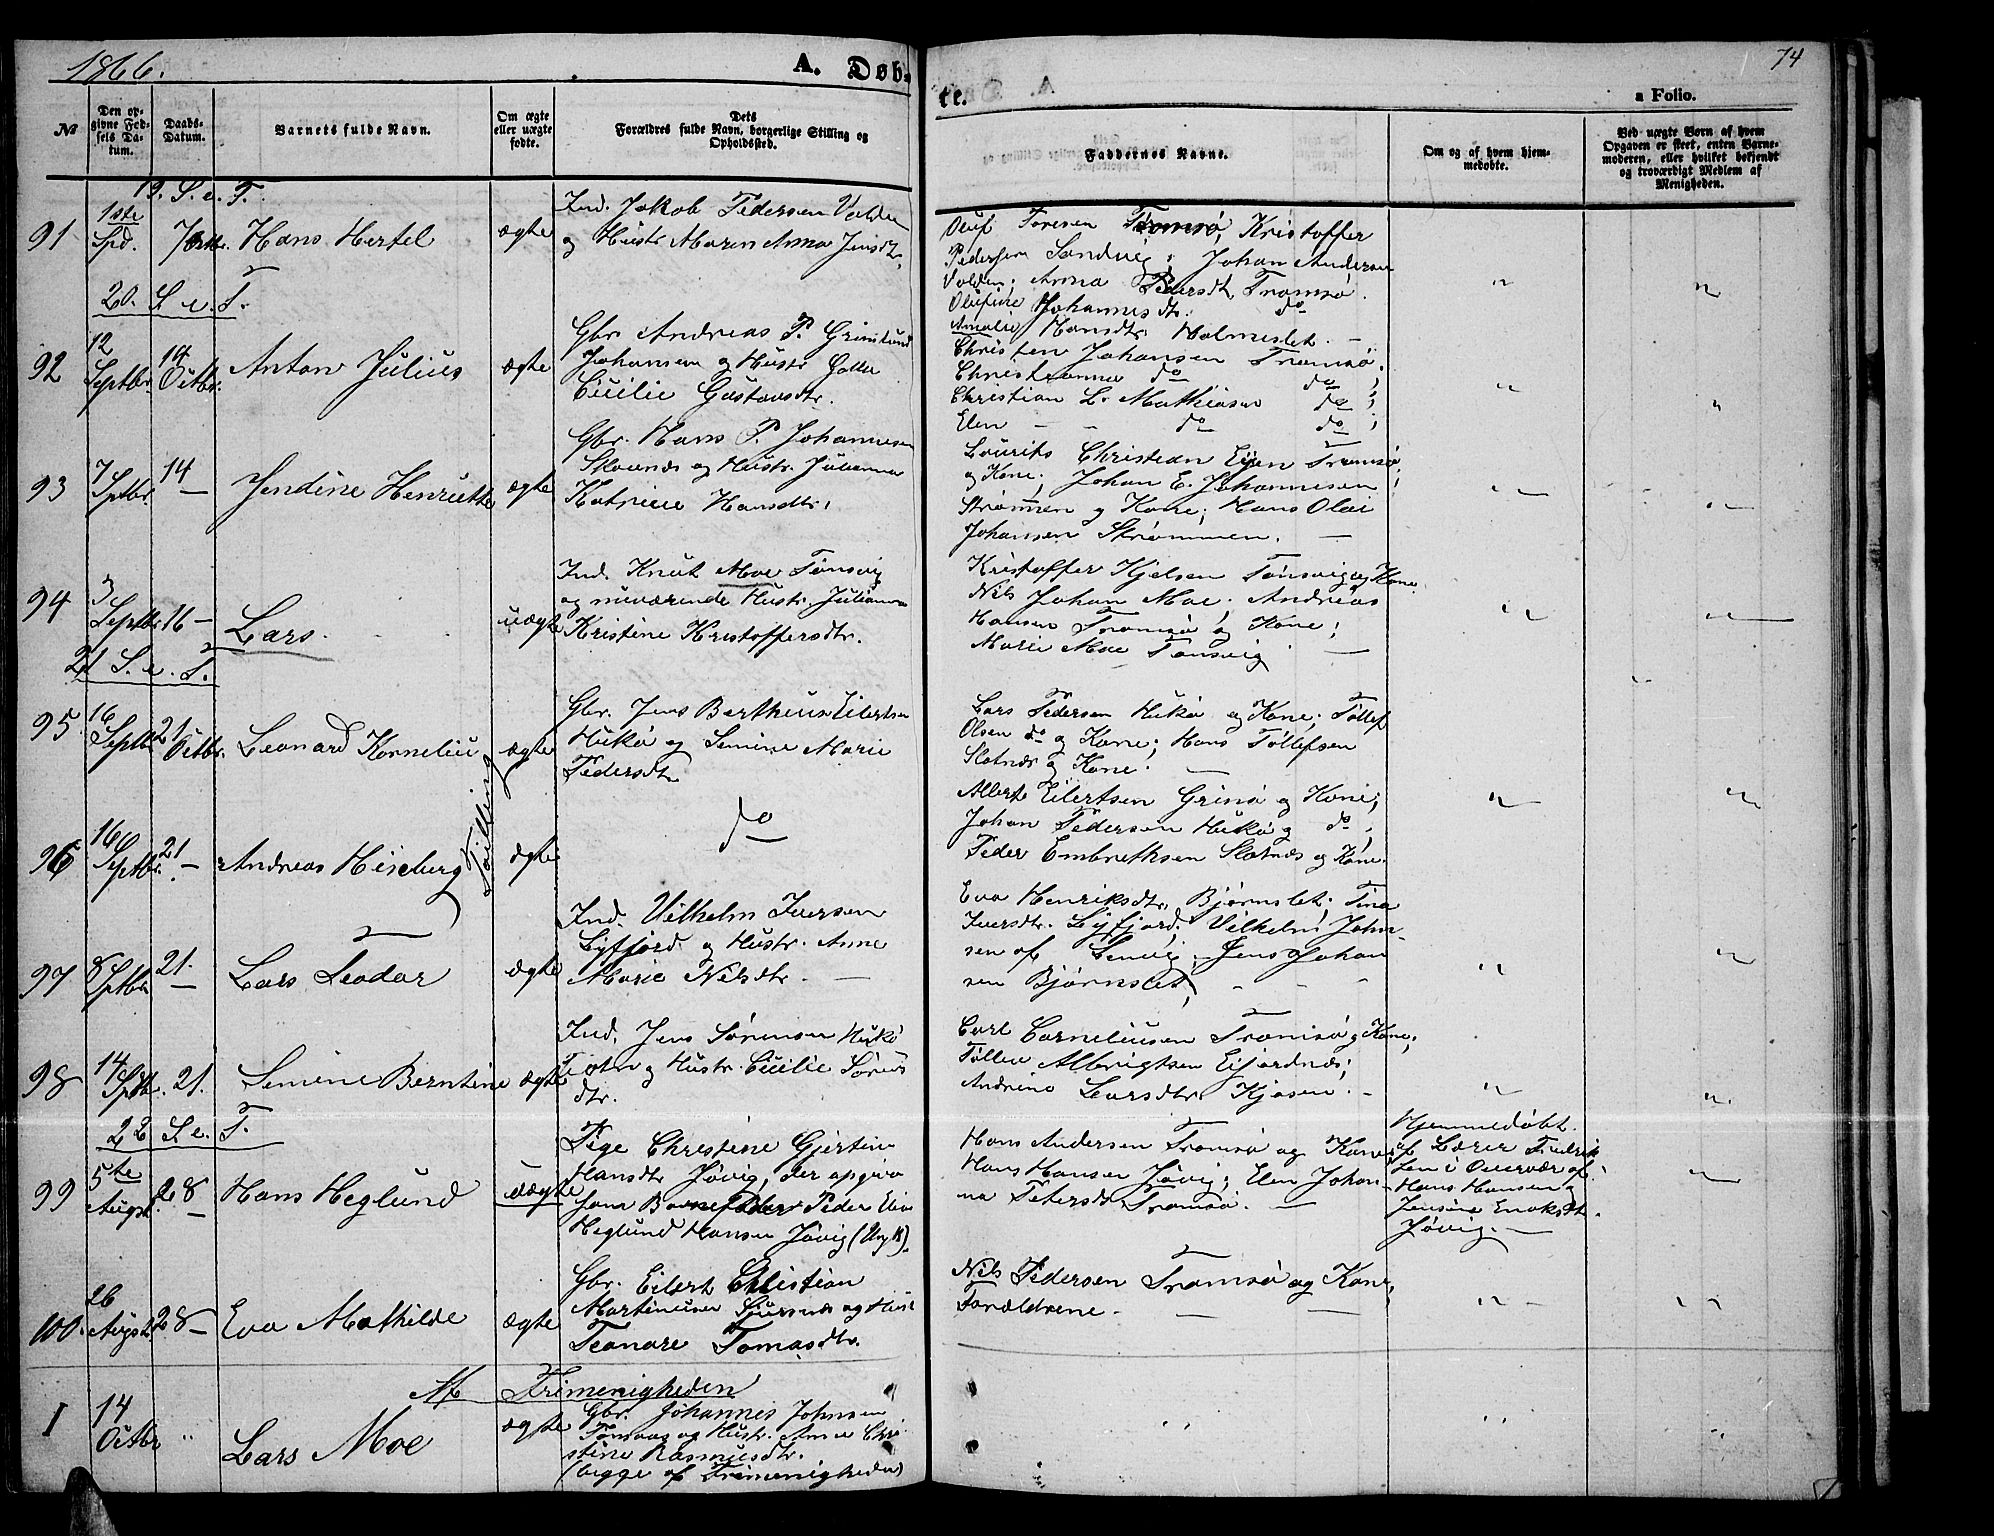 1866.
A. Døb-
№
Den op-
givne Fød-
sels Da-
tum.
Daabs-
Datum.
Barnets fulde Navn.
Om ægte
eller uægte
fødte.
Dets
Forældres fulde Navn, borgerlige Stilling og
Opholdssted.
19. S. e. T.
91
1ste
Spd.
7 Oktbr.
Hans Hertel
ægte
Ind. Jakob Pedersen Valden
og Hustr Maren Anna Jensdtr.
20. S. e. T.
92
12
Septbr.
14
Octbr.
Anton Julius
ægte
Gbr. Andreas P. Grimslund
Johansen og Hustr
Cecilie Gustavsdtr.
93
7
Sptbr.
14
—
Jendine Henriette
ægte
Gbr. Hans P. Johannesen
og Hustr. Julianna
Katrine Hansdtr.
94
3
Septbr.
16 —
Lars.
uægte
Ind. Knut Moe Tønsvig
og nuværende Hustr. Julianna
Kristine Kristoffersdtr.
21 S. e. T.
95
16
Septbr.
21
Octbr.
Leonard Kornelius
Tvilling
ægte
Gbr. Jens Bertheus Eilertsen
Hukø og Semine Marie
Pedersdtr
96
16
Septbr.
21
—
Andreas Heiberg
ægte
do
97
8
Sptbr.
21.
—
Lars Leodor
ægte
Ind. Vilhelm Iversen
Lyfjord og Hustr. Anne
Marie Nilsdtr. —
98
14
Sptbr.
21.
Semine Berntine
ægte
Ind. Jens Sørensen Hukø
og Hustr. Cecilie Sørens
dtr.
22 S. e. T.
99
5te
Augst.
28
—
Hans Heglund
uægte
Pige Christine Gjertine
Hansdtr Jøvig, der opgiva
som Barnefader Peder Elia
Heglund Hansen Jøvig (Ungk).
100.
26
Augst.
28 —
Eva Mathilde
ægte
Gbr. Eilert Christian
Martinusen og Hust
Leonore Tomasdtr.
Af Frimenigheden
I
14
Octbr
"
Lars Moe
ægte
Gbr. Johannes Johnsen
Tomaas og Hustr. Anne Chri
stine Rasmusdtr.
(begge af Frimenigheden)
74
te.
a Folio.
Faddernes Navne.
Om og af hvem hjem-
medøbte.
Ved uægte Børn af hvem
Opgaven er skeet, enten Barne-
moderen, eller hvilket bekjendt
og troværdigt Medlem af
Menigheden.
Oluf Toresen Tromsø, Kristoffer
Pedersen Sandvig; Johan Andersen
Valden; Anna Pedersdtr. Tromsø.
Olufine Johannesdtr. do
Amalie Hansdtr. Holmeslet. —
Christen Johansen Tromsø.
Christianna do do;
Christian L. Mathiasen do;
Elen — - do do;
Lourits Christean Eijen Tromsø
og Kone; Johan E. Johannesen
Strømmen og Kone; Hans Olai
Johansen Strømmen. —
Kristoffer Kjelsen Tønsvig og Kone.
Nils Johan Moe; Andreas
Hansen Tromsø og Kone;
Marie Moe Tønsvig —
Lars Pedersen Hukø og Kone; Tollef
Olsen do og Kone; Hans Tollefsen
Slotnæs og Kone.
Albert Eilertsen Grinø og Kone;
Johan Pedersen Hukø og do;
Peder Embrethsen Slotnæs og Kone.
Eva Henriksdtr. Bjørnslet; Tina
Iversdtr. Lyfjord; Vilhelm John-
sen af Lenvig; Jens Johan
sen Bjørnslet; - - -
Carl Corneliusen Tromsø og Kone;
Tollev Albrigtsen Eijordnæs;
Andrine Larsdtr. Kjosen. -
Hans Andersen Tromsø og Kone;
Hans Hansen Jøvig; Elen Johan-
na Petersdtr. Tromsø. —
Hjemmedøbt.
af Lærer Fredrik
sen i Overvær af
Hans Hansen og
Jensine Enoksdtr.
Jøvig. —
Nils Pedersen Tromsø og Kone,
Forældrene. — —